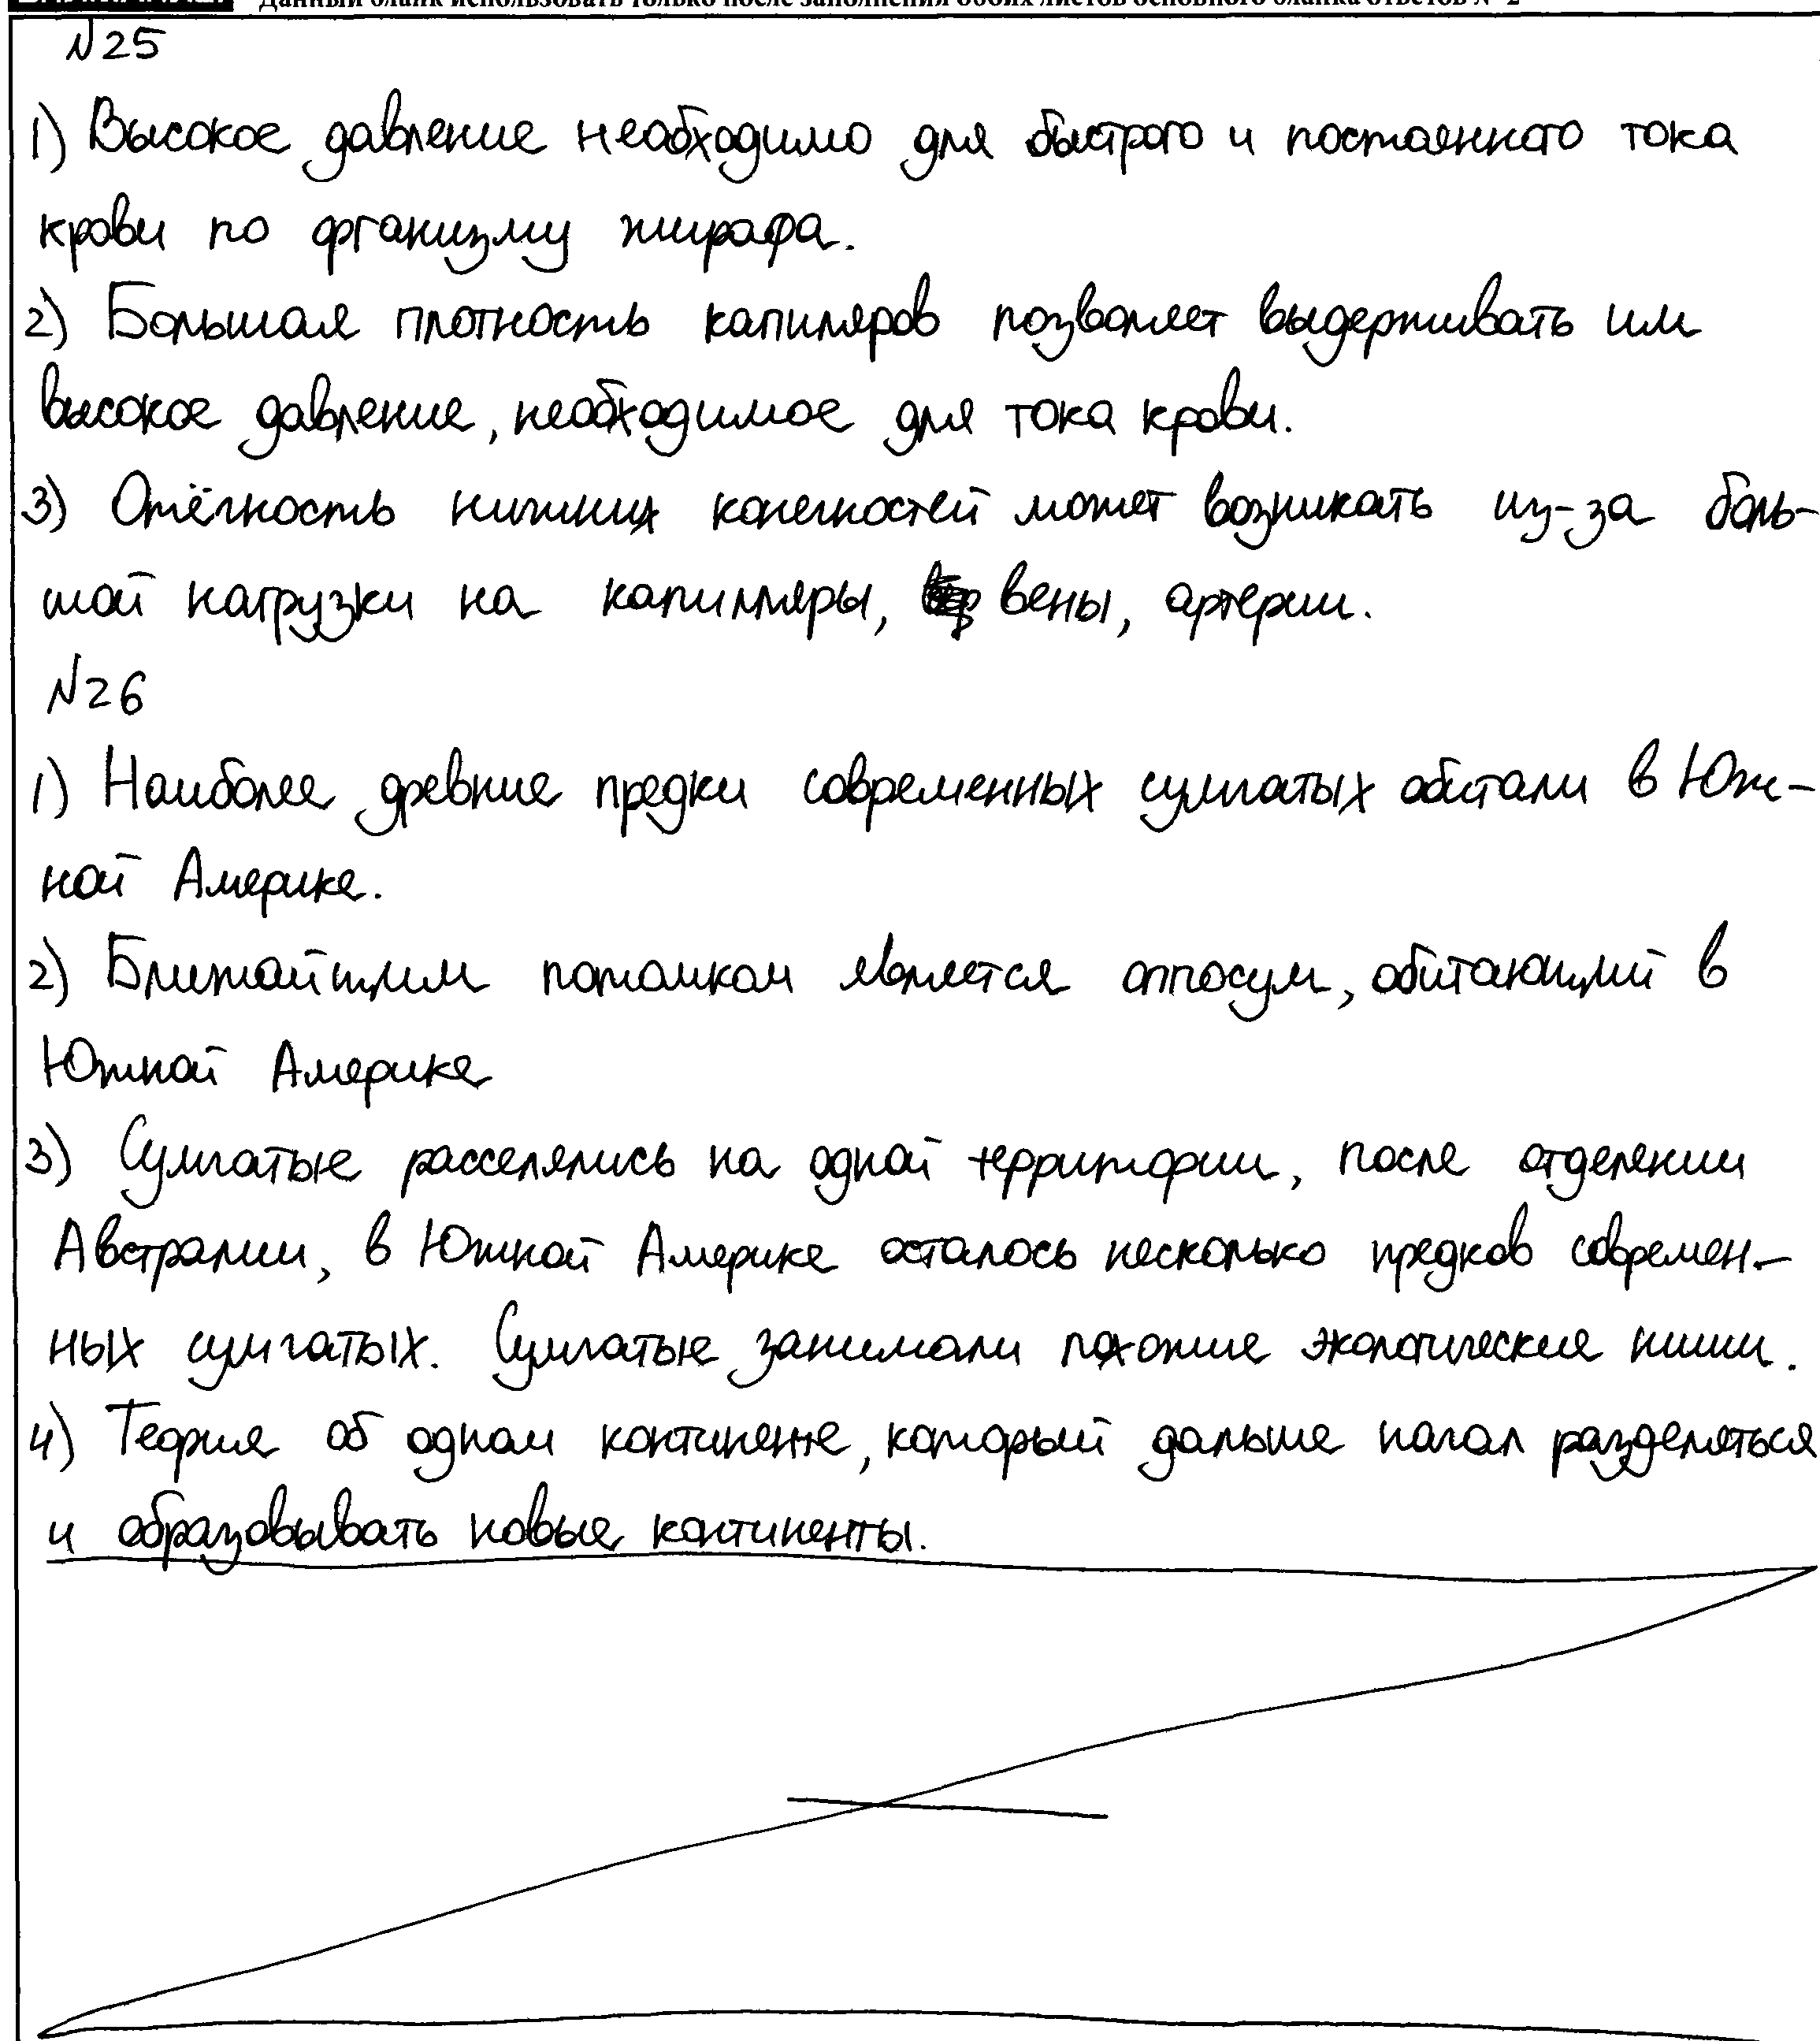 Данный бланк использовать только после заполнения обоих листов основного бланка ответов № 2
№25
1) Высокое давление необходимо для быстрого и постоянного тока
крови по организму жирафа.
2) Большая плотность капиляров позволяет выдерживать им
высокое давление, необходимое для тока крови.
3) Отёчность нижних конечностей может возникать из-за боль-
шой нагрузки на капилляры, вены, артерии.
№26
1) Наиболее древние предки современных сумчатых обитали в Юж-
ной Америке.
2) Ближайшим потомком является опосум, обитающий в
Южной Америке
3) Сумчатые расселялись на одной территории, после отделении
Австралии, в Южной Америке осталось несколько предков современ-
ных сумчатых. Сумчатые занимали похожие экологические ниши.
4) Теория об одном континенте, который дальше начал разделяться
и образовывать новые континенты.